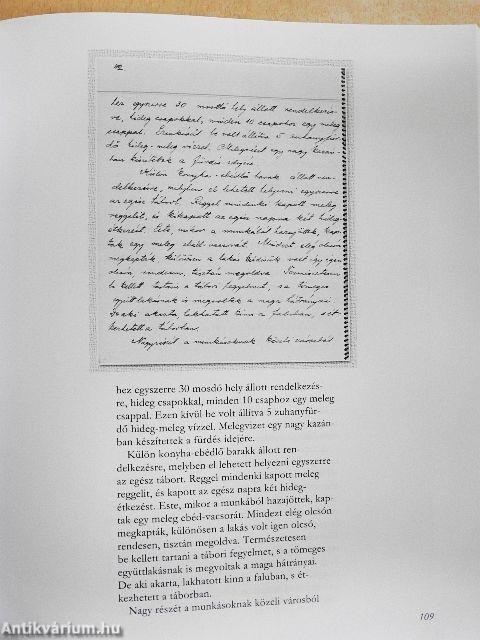 hez egyszerre 30 mosdó hely állott rendelkezés-
re, hideg csapokkal, minden 10 csaphoz egy meleg
csappal. Ezenkívül be volt állítva 5 zuhanyfür-
dő hideg-meleg vízzel. Melegvizet egy nagy kazán-
ban készítettek a fürdés idejére.
Külön konyha-ebédlő barakk állott ren-
delkezésre, melyben el lehetett helyezni egyszerre
az egész tábort. Reggel mindenki kapott meleg
reggelit, és kapott az egész napra két hideg-
étkezést. Este, mikor a munkából hazajöttek, kap-
tak egy meleg ebéd-vacsorát. Mindezt elég olcsón
megkapták, különösen a lakás volt igen
olcsó, rendesen, tisztán megoldva. Természetesen
be kellett tartani a tábori fegyelmet, s a tömeges
együttlakásnak is megvoltak a maga hátrányai.
De aki akarta, lakhatott kinn a faluban, s ét-
kezhetett a táborban.
Nagyrészt a munkásoknak közeli városból
hez egyszerre 30 mosdó hely állott rendelkezés-
re, hideg csapokkal, minden 10 csaphoz egy meleg
csappal. Ezen kívül be volt állítva 5 zuhanyfür-
dő hideg-meleg vízzel. Melegvizet egy nagy kazán-
ban készítettek a fürdés idejére.
Külön konyha-ebédlő barakk állott ren-
delkezésre, melyben el lehetett helyezni egyszerre
az egész tábort. Reggel mindenki kapott meleg
reggelit, és kapott az egész napra két hideg-
étkezést. Este, mikor a munkából hazajöttek, kap-
tak egy meleg ebéd-vacsorát. Mindezt elég olcsón
megkapták, különösen a lakás volt igen olcsó,
rendesen, tisztán megoldva. Természetesen
be kellett tartani a tábori fegyelmet, s a tömeges
együttlakásnak is megvoltak a maga hátrányai.
De aki akarta, lakhatott kinn a faluban, s ét-
kezhetett a táborban.
Nagy részét a munkásoknak közeli városból
109
Antikvárium.hu